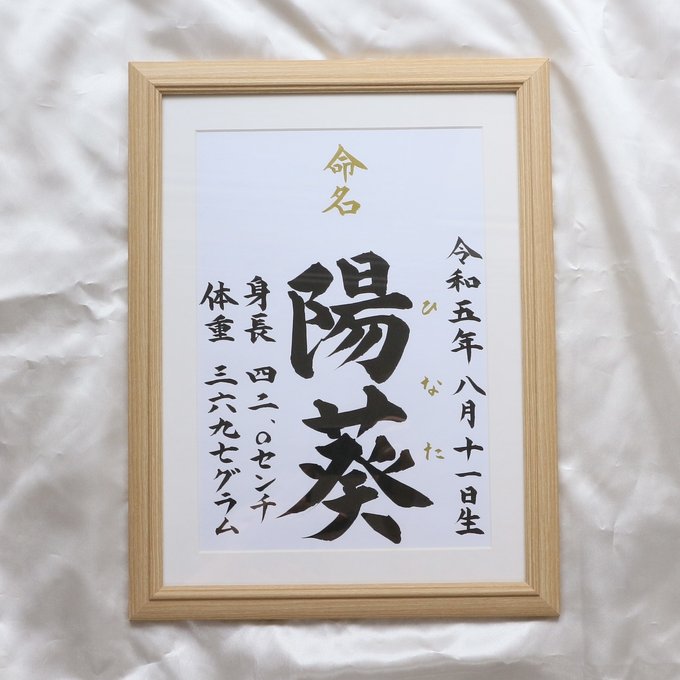 命名
令和五年 八月十一日生
陽葵
ひなた
身長 四二、〇センチ
体重 三六九七グラム